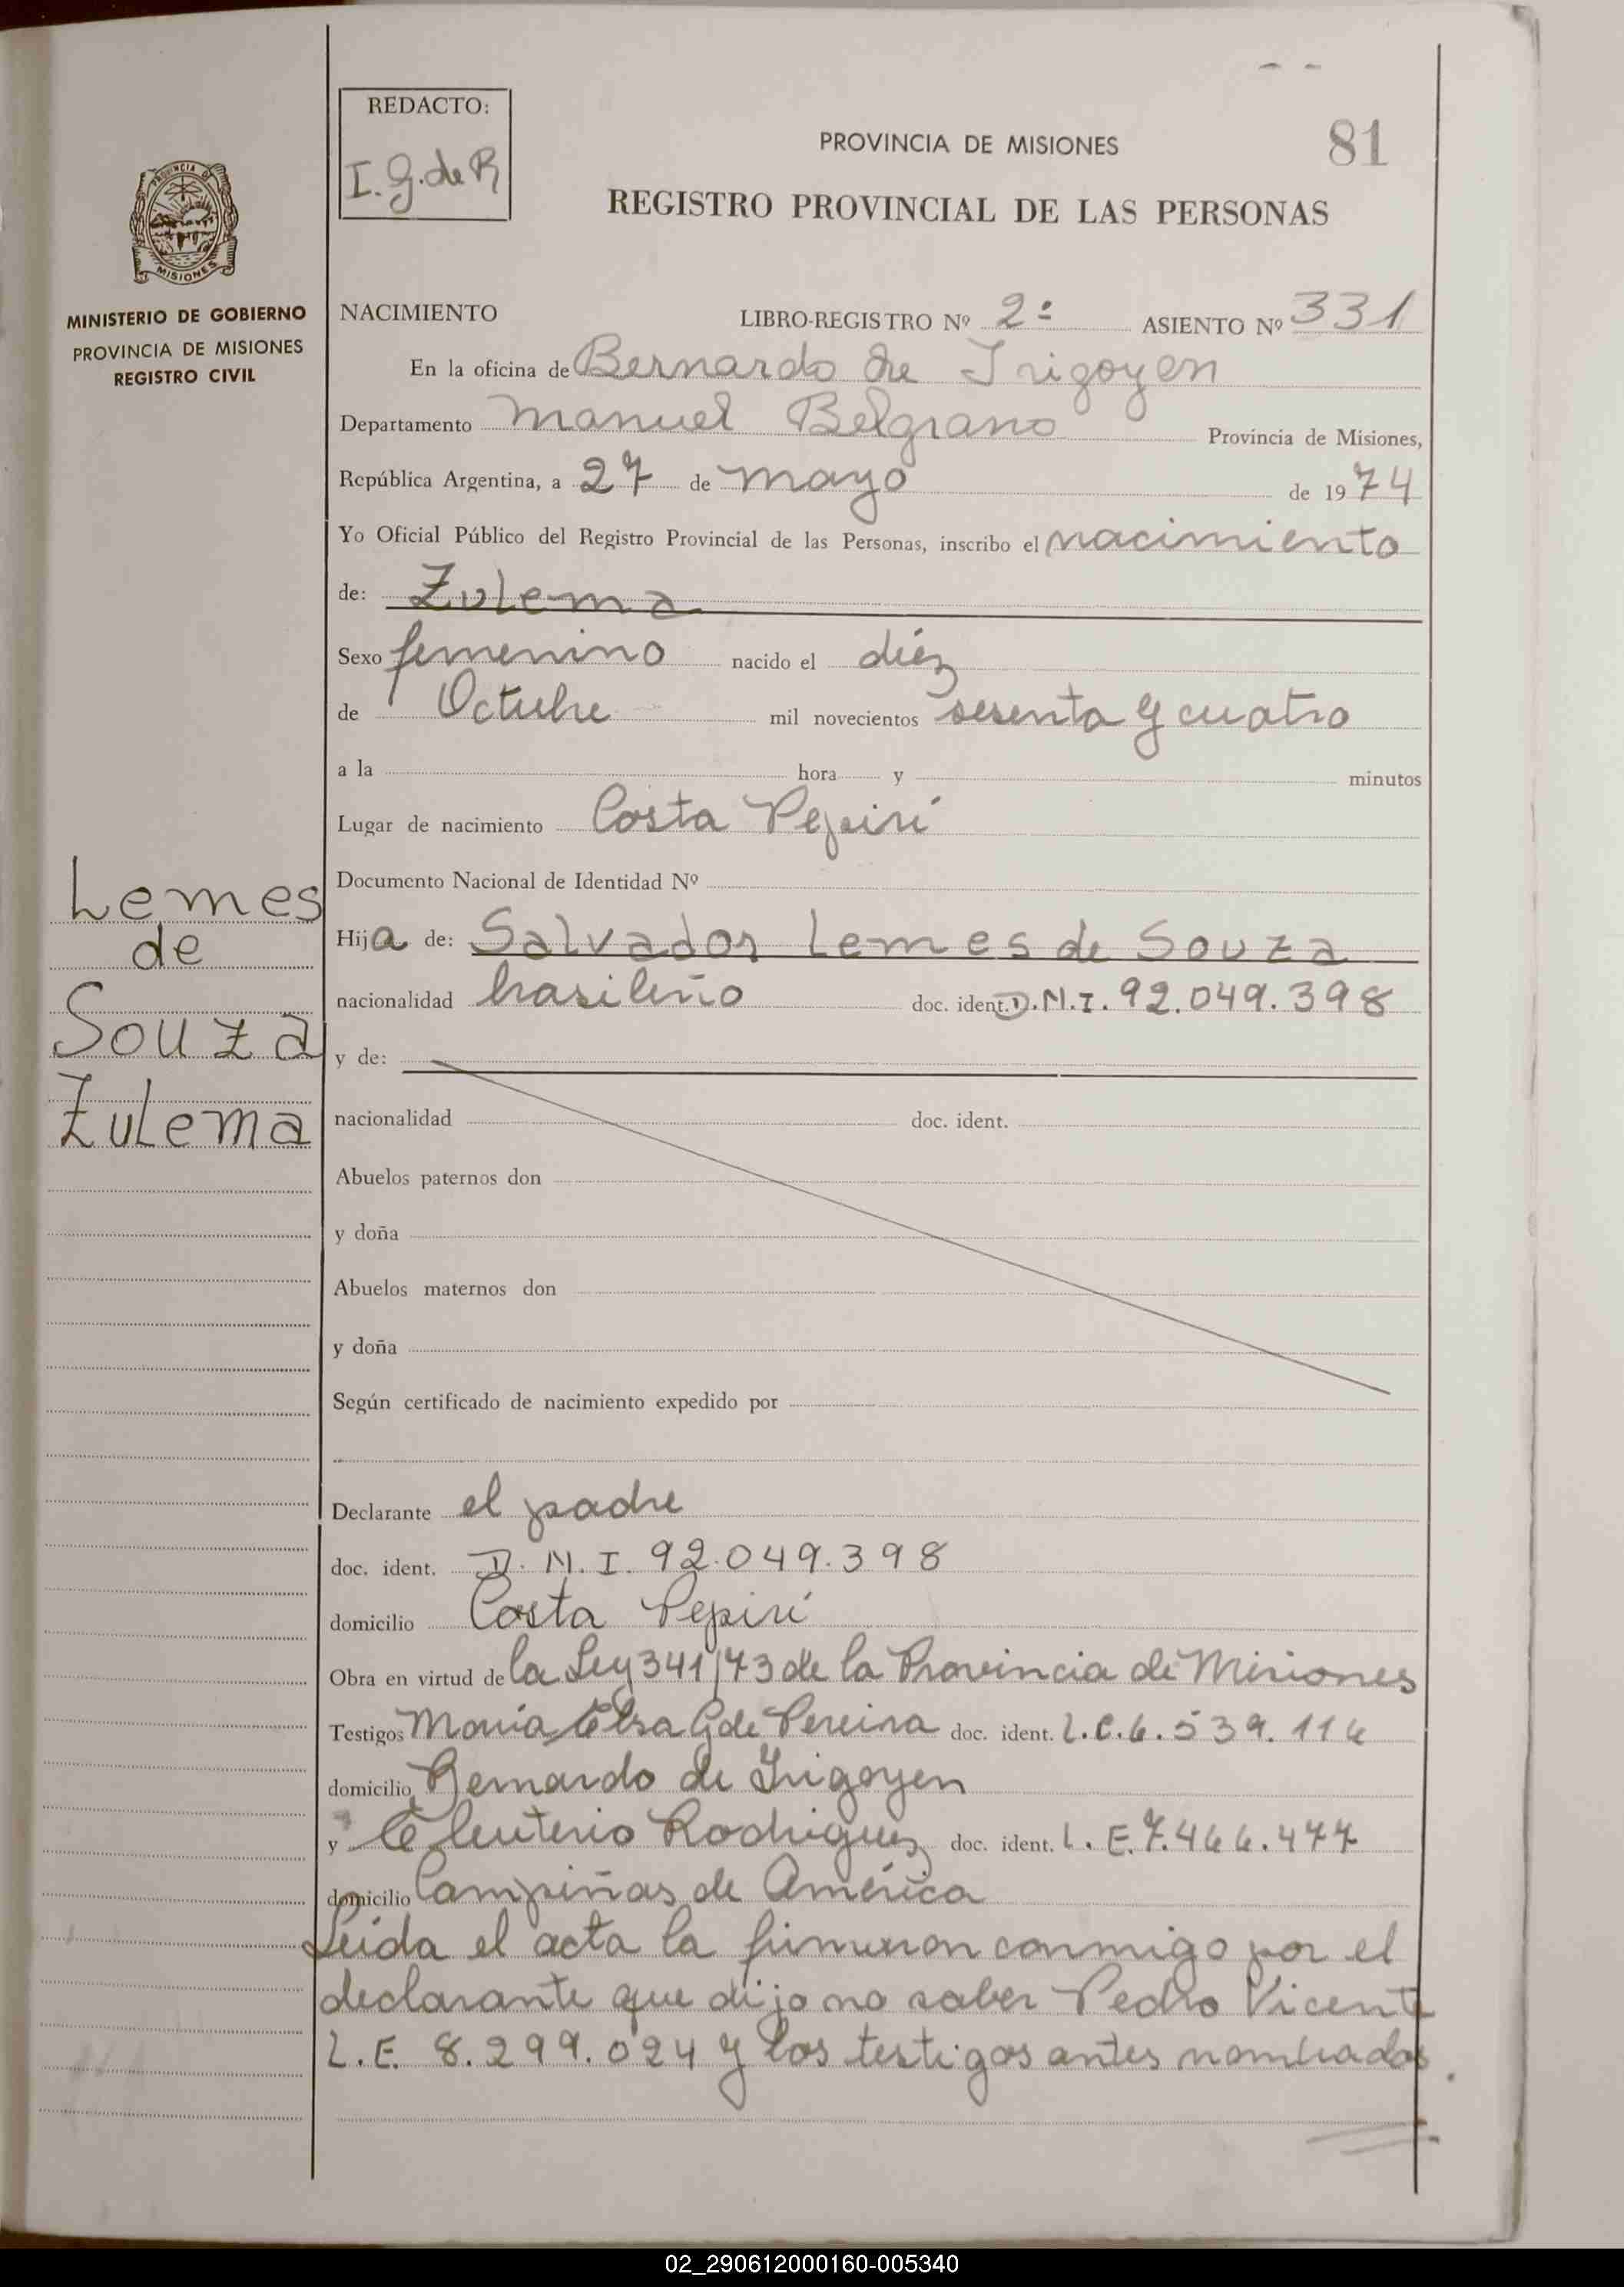 REDACTO:
I. G. de R
PROVINCIA DE MISIONES
81
REGISTRO PROVINCIAL DE LAS PERSONAS
PROVINCIA D
MISIONES
MINISTERIO DE GOBIERNO
PROVINCIA DE MISIONES
REGISTRO CIVIL
NACIMIENTO LIBRO-REGISTRO Nº 2º ASIENTO Nº 331
En la oficina de Bernardo de Irigoyen
Departamento Manuel Belgrano Provincia de Misiones,
República Argentina, a 27 de mayo de 1974
Yo Oficial Público del Registro Provincial de las Personas, inscribo el nacimiento
de: Zulema
Sexo femenino nacido el diéz
de Octubre mil novecientos sesenta y cuatro
a la hora y minutos
Lugar de nacimiento Costa Pepirí
Documento Nacional de Identidad Nº
Lemes
de
Souza
Zulema
Hija de: Salvador Lemes de Souza
nacionalidad brasileño doc. ident. D.N.I. 92.049.398
y de:
nacionalidad doc. ident.
Abuelos paternos don
y doña
Abuelos maternos don
y doña
Según certificado de nacimiento expedido por
Declarante el padre
doc. ident. D. N. I. 92.049.398
domicilio Costa Pepirí
Obra en virtud de la Ley 341/73 de la Provincia de Misiones
Testigos María Elsa G de Pereira doc. ident. L.C. 6.539.116
domicilio Bernardo de Irigoyen
y Eleuterio Rodriguez doc. ident. L. E. 7.466.477
domicilio Campiñas de América
Leída el acta la firmaron conmigo por el
declarante que dijo no saber Pedro Vicente
L.E. 8.299.024 y los testigos antes nombrados.
02_290612000160-005340